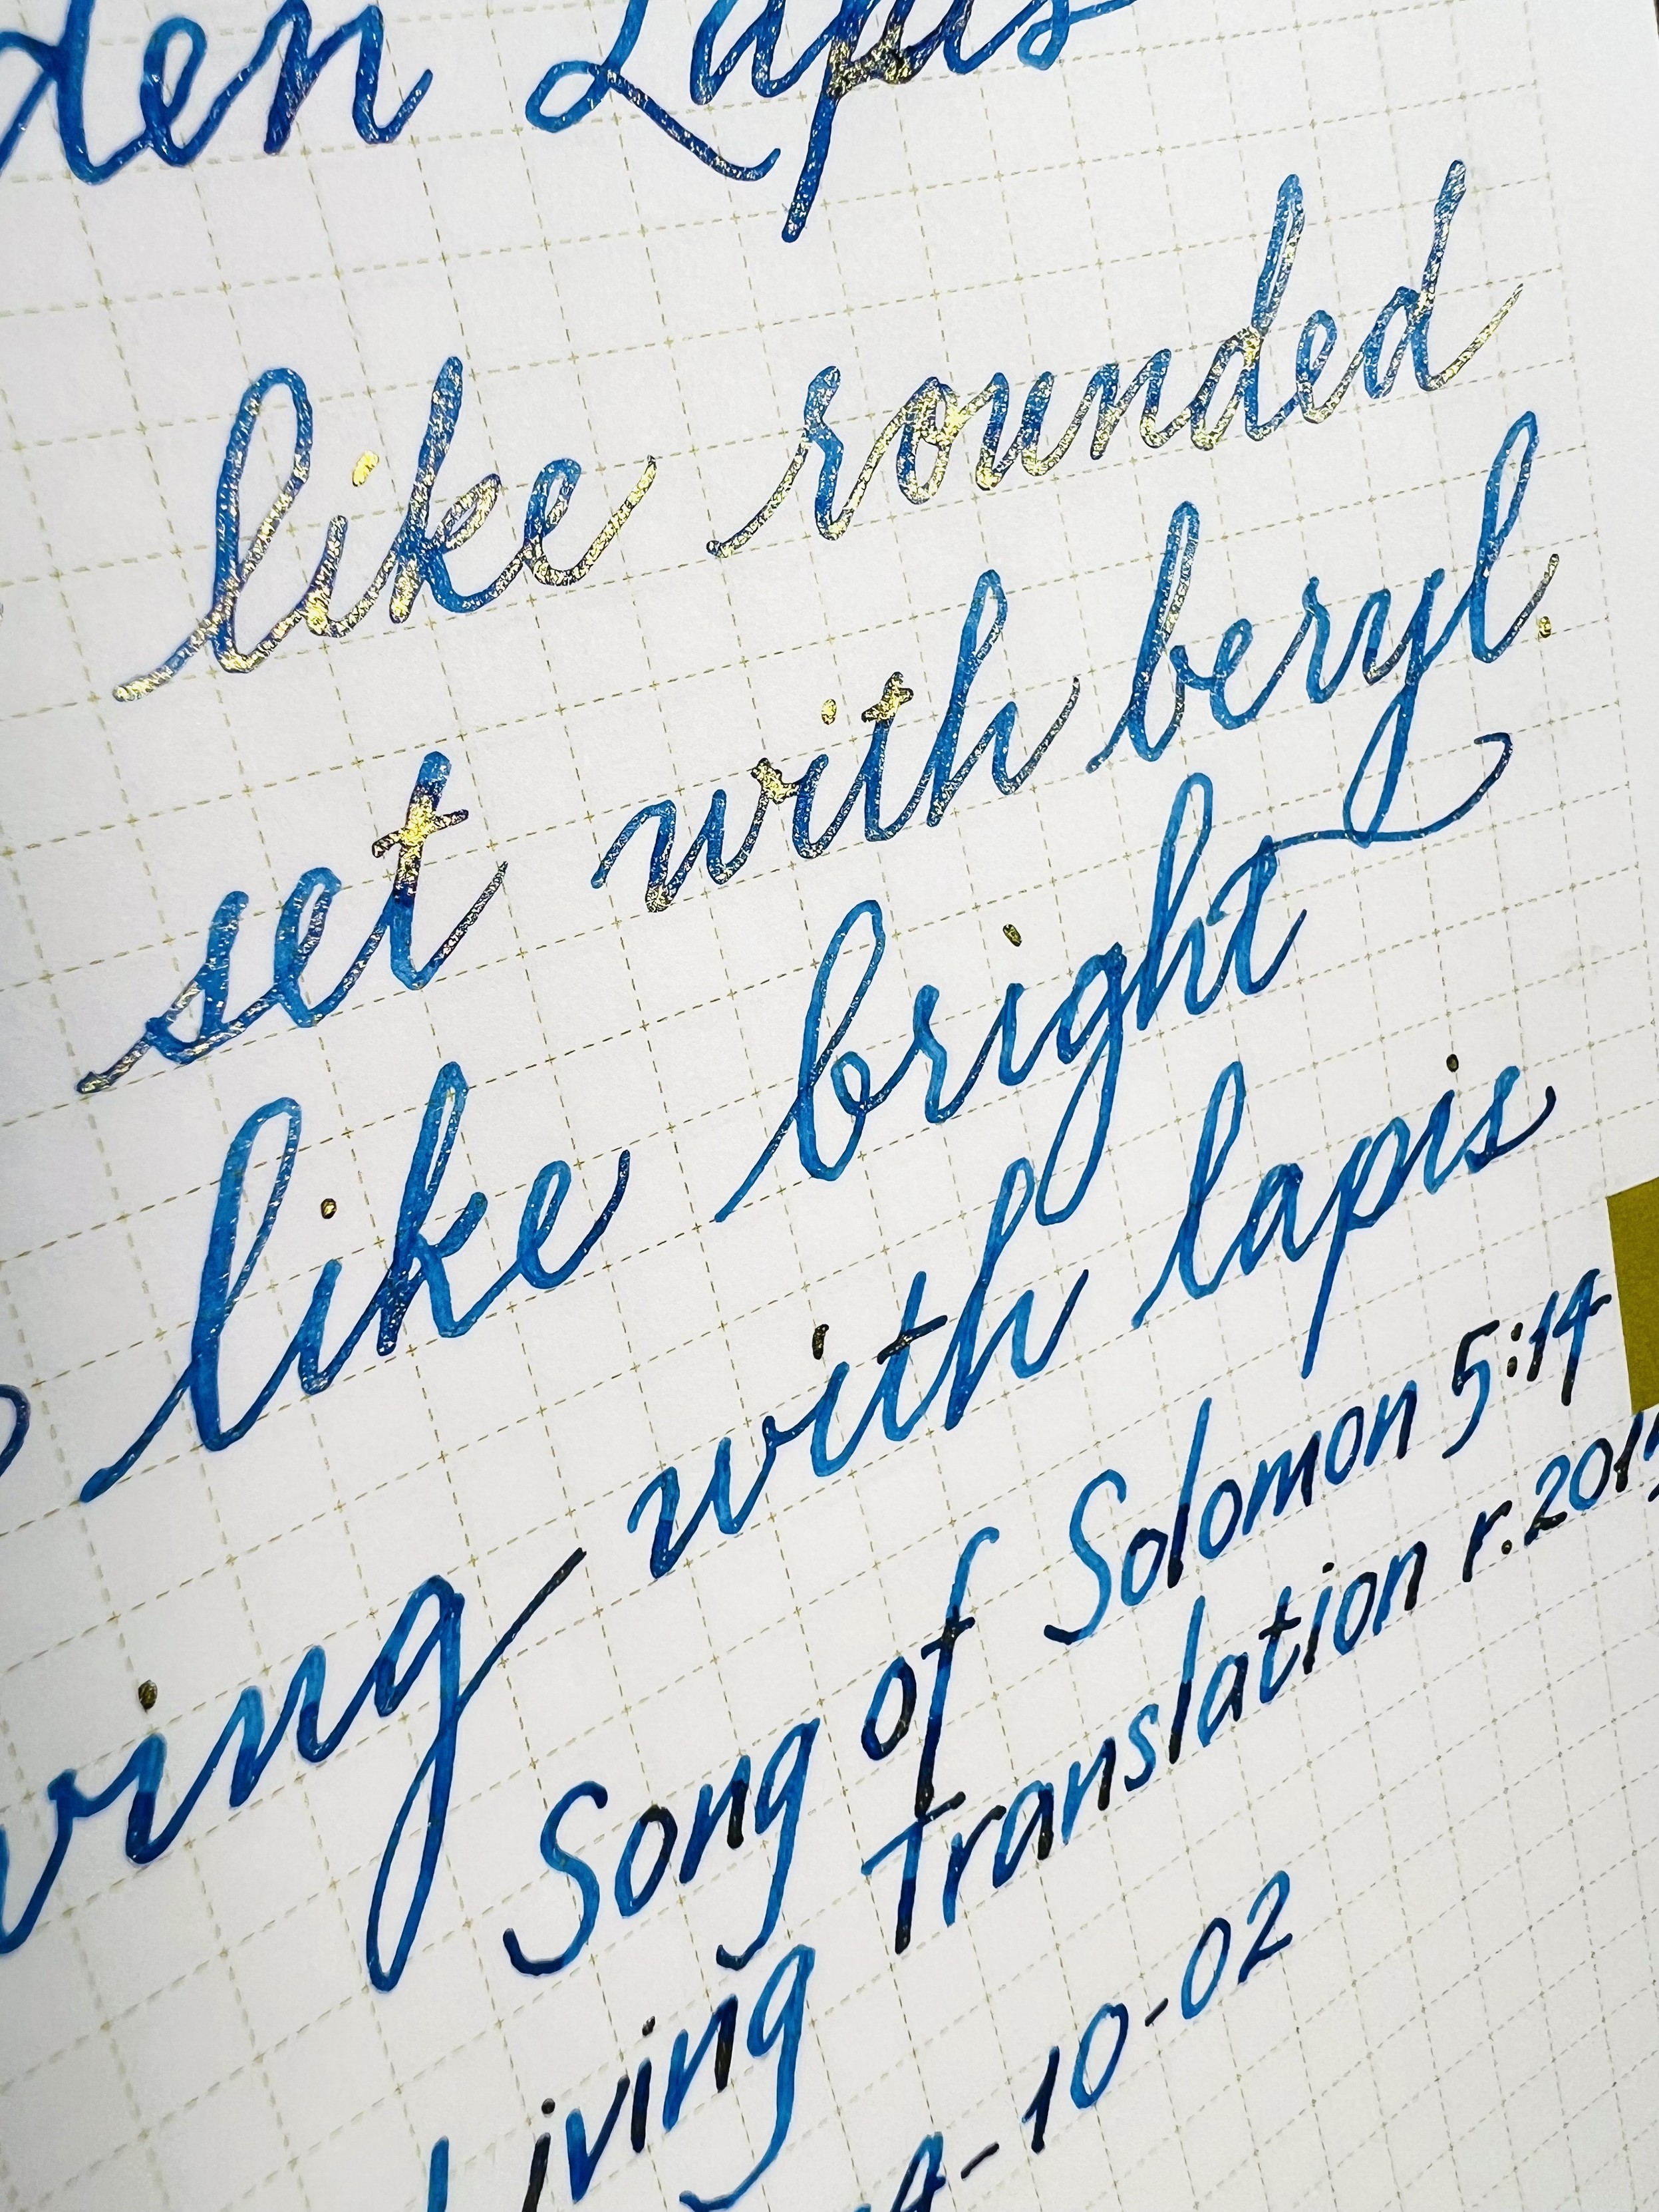 den Lapis
like rounded
set with beryl.
like bright
ving with lapis
Song of Solomon 5:14
Living Translation r.201
4-10-02